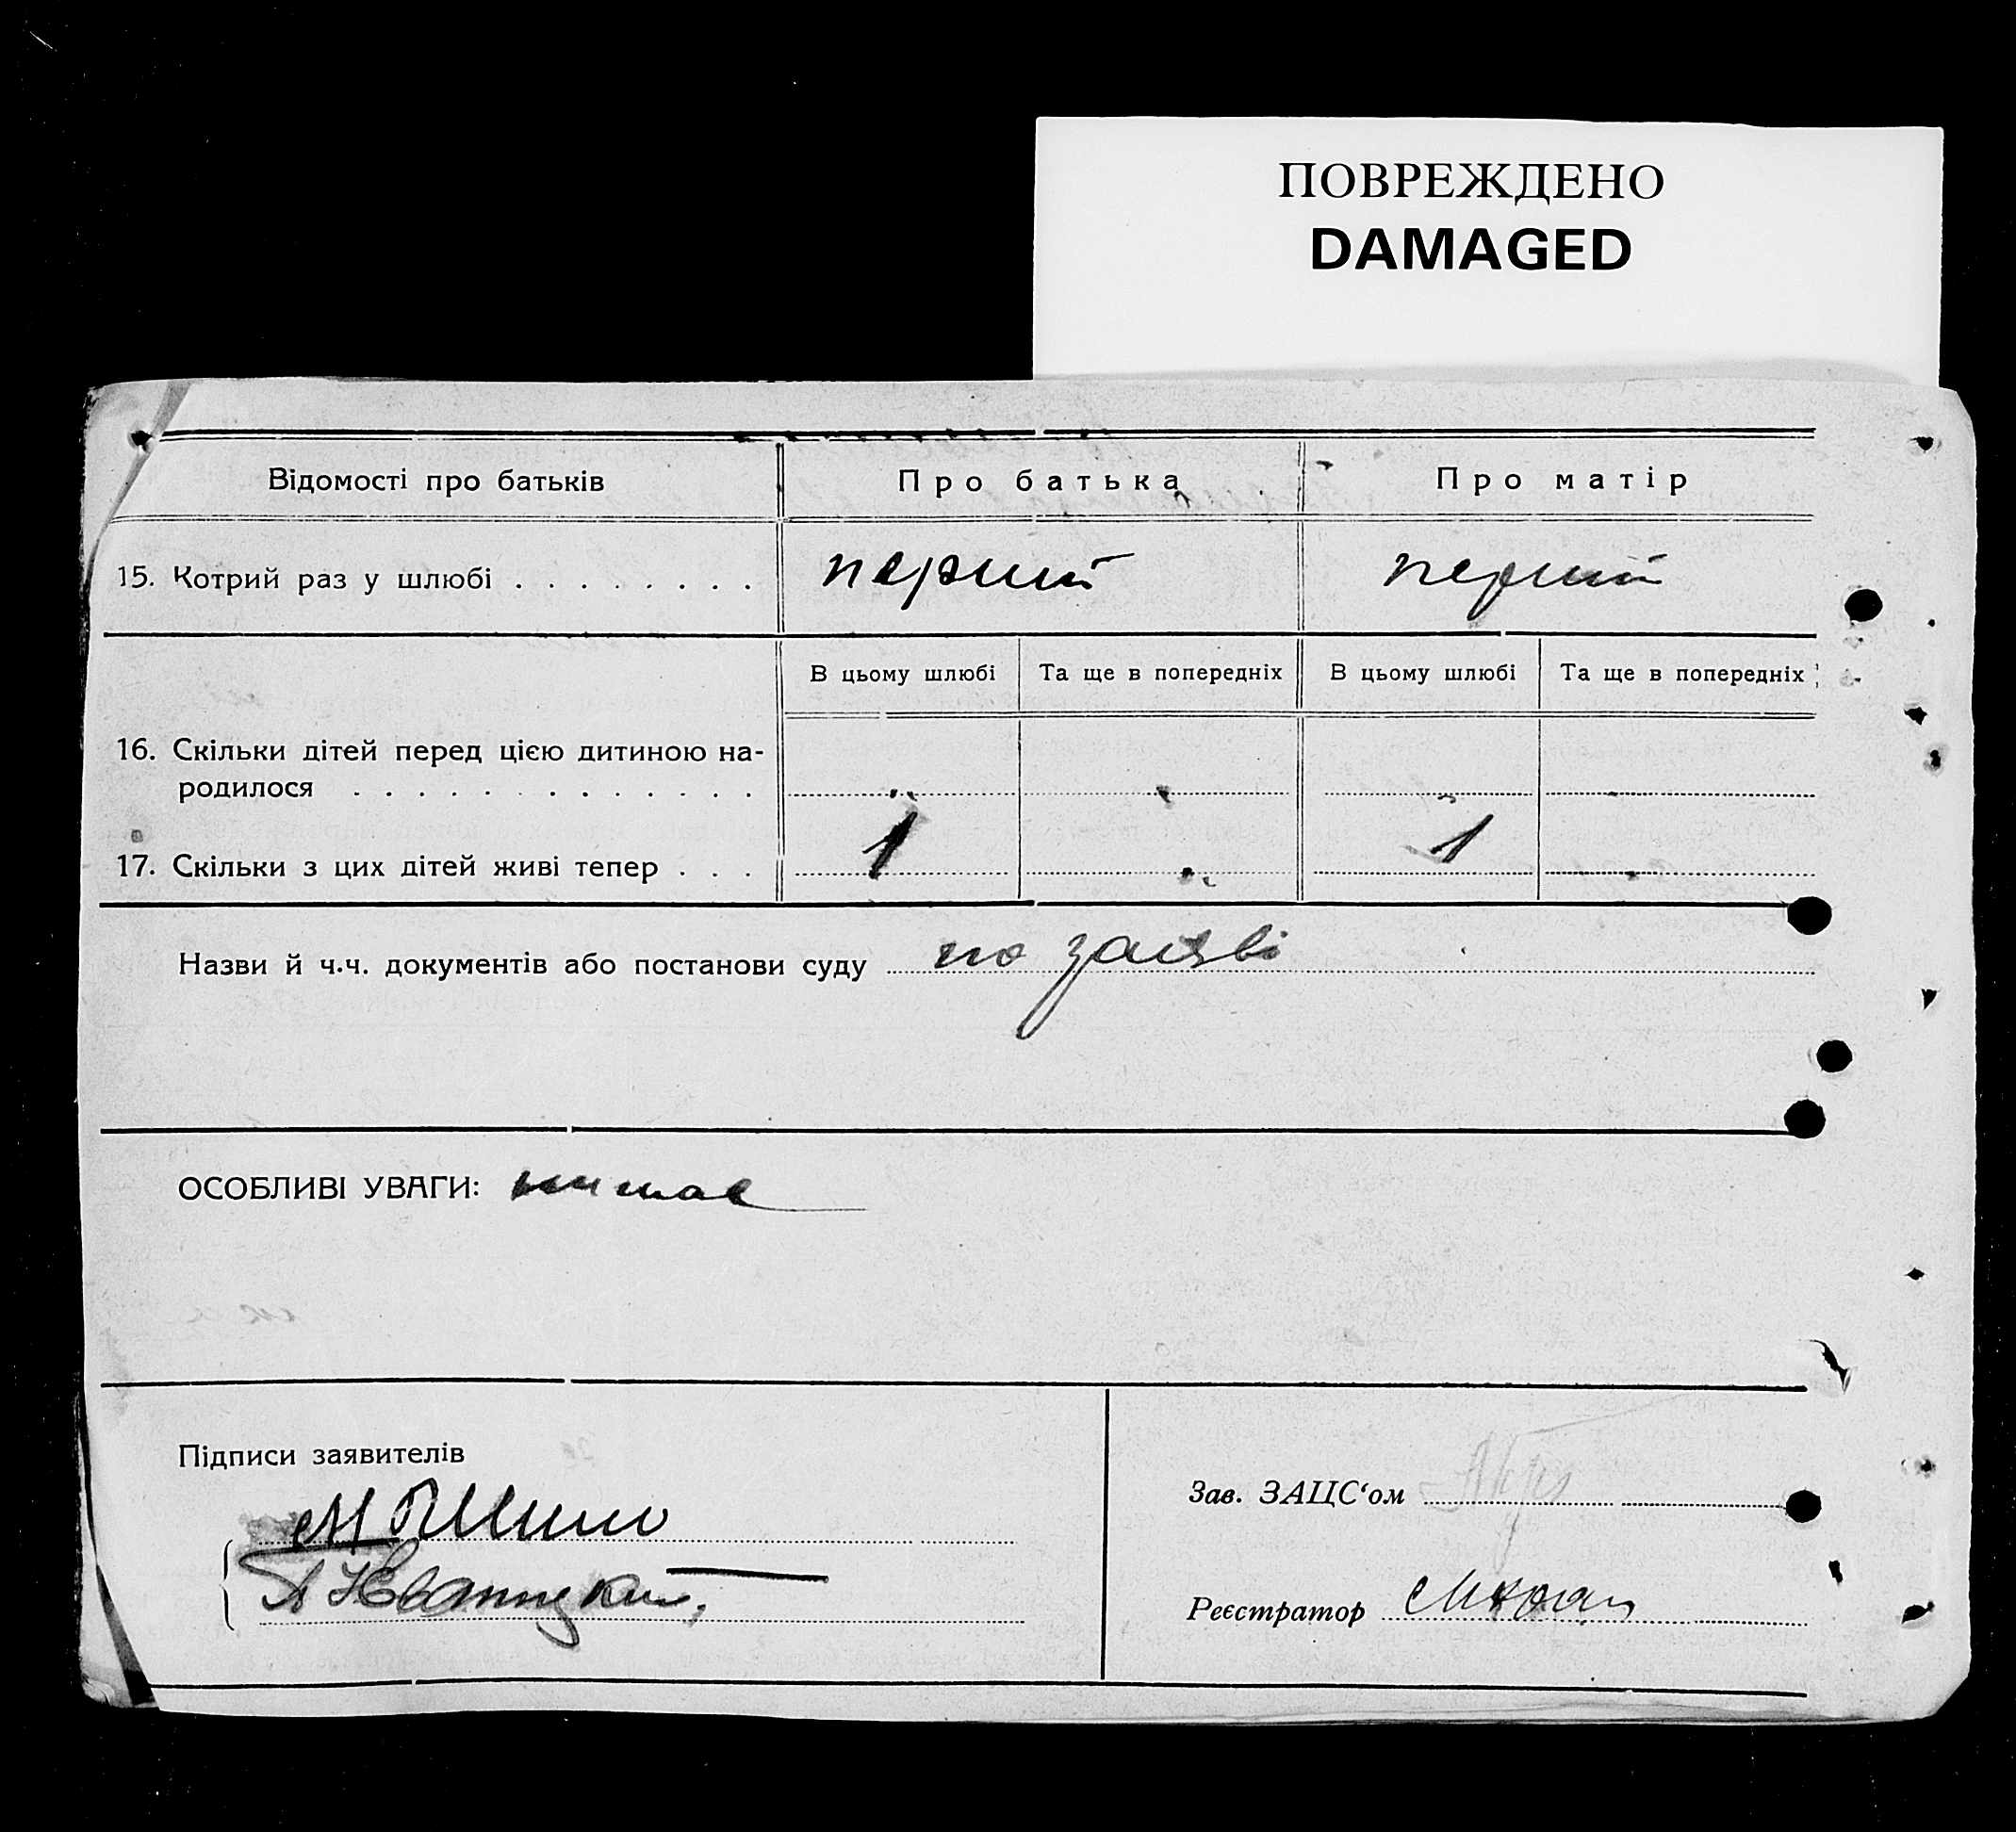 ПОВРЕЖДЕНО
DAMAGED
Відомості про батьків
Про батька
Про матір
15. Котрий раз у шлюбі . . . . . . . .
перший
перший
В цьому шлюбі
Та ще в попередніх
В цьому шлюбі
Та ще в попередніх
16. Скільки дітей перед цією дитиною на-
родилося . . . . . . . . . . . . .
17. Скільки з цих дітей живі тепер . . .
1
1
Назви й ч.ч. документів або постанови суду по заяві
ОСОБЛИВІ УВАГИ: немає
Підписи заявителів
Зав. ЗАЦС‘ом
Реєстратор